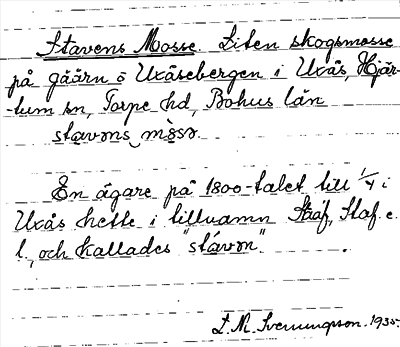 Stavens Mosse. Liten skogsmosse
på gäärn ö Uxåsebergen i Uxås, Hjär-
-tum sn, Torpe hd, Bohus län
stavons mosso.
En ägare på 1800-talet till 1/4 i
Uxås hette i tillnamn Stååf, Staf e.
l., och kallades "stávon".
L. M. Svenungsson. 1935.